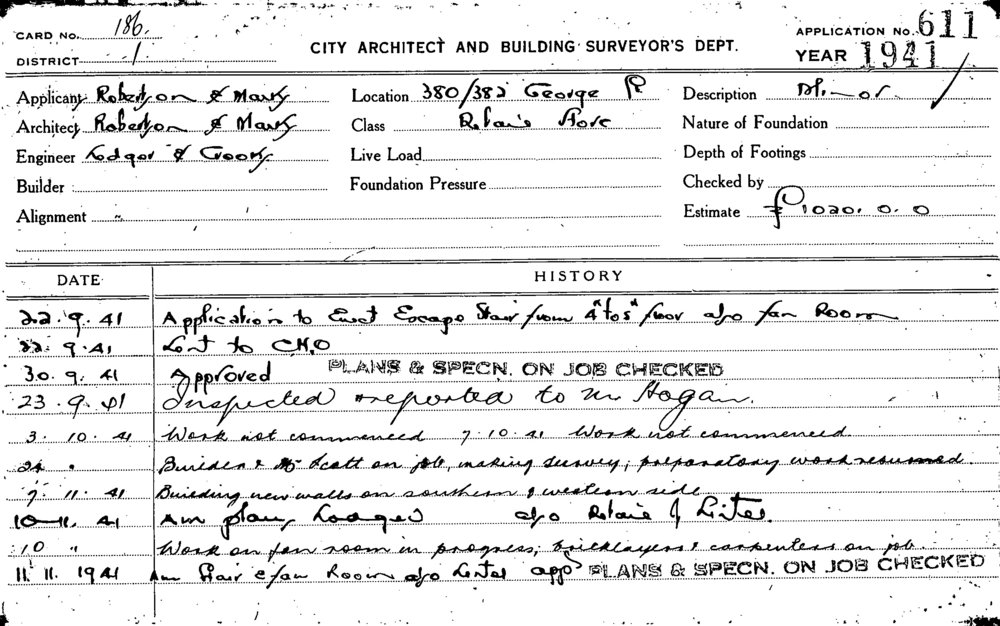 CARD No. 186.
DISTRICT 1
CITY ARCHITECT AND BUILDING SURVEYOR'S DEPT.
APPLICATION No. 611
YEAR 1941
Applicant Robertson & Marks
Architect Robertson & Marks
Engineer
Builder
Alignment
Location 380/382 George St
Class Retail Store
Live Load
Foundation Pressure
Description Minor
Nature of Foundation
Depth of Footings
Checked by
Estimate £1020. 0. 0
DATE HISTORY
22. 9. 41 Application to Erect Escape Stair from 4th to 5th floor also fan Room
22. 9. 41 Sent to C.H.O
30. 9. 41 Approved PLANS & SPECN. ON JOB CHECKED
23. 9. 41 Inspected & reported to Mr Hogan.
3. 10. 41 Work not commenced 7. 10. 41 Work not commenced
24 " Builder & Mr Scott on job, making survey, preparatory work resumed.
7. 11. 41 Building new walls on southern & western side
10-11. 41 Am plans Lodged also
10 " Work on fan room in progress, bricklayers & carpenters on job
11. 11. 1941 Am Stair & fan Room also PLANS & SPECN. ON JOB CHECKED